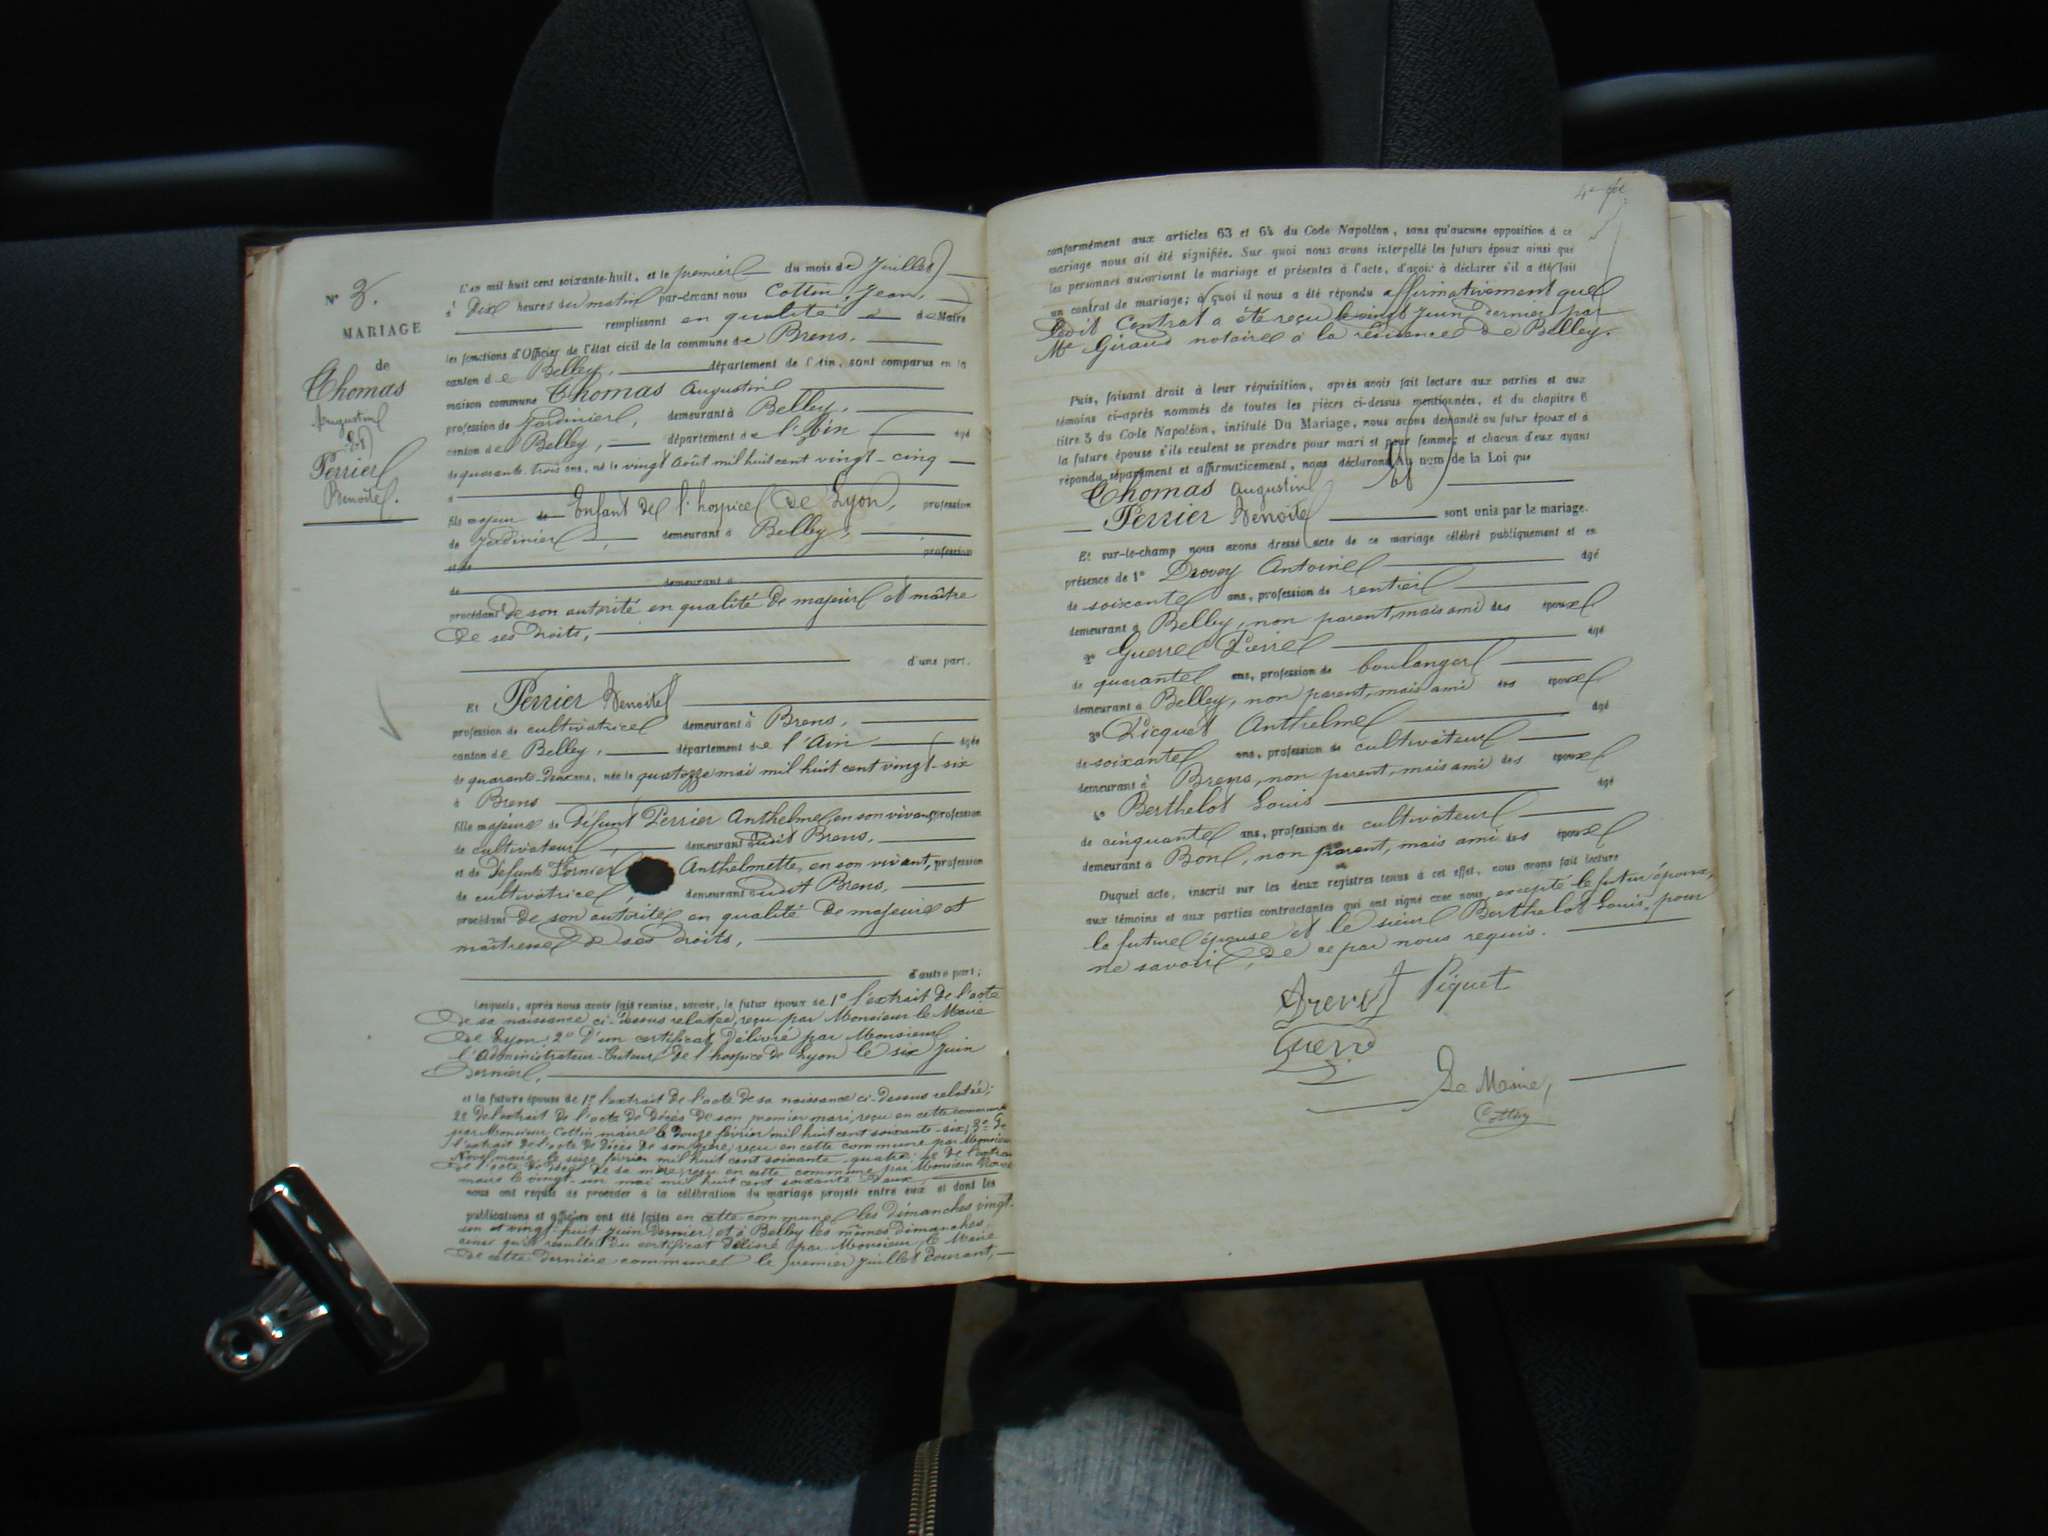 N° 3.
MARIAGE
de
Thomas
Augustin
et
Perrier
Benoite.
L'an mil huit cent soixante-huit, et le premier du mois de Juillet
à Dix heures du matin par-devant nous Cottin, Jean,
remplissant en qualité de Maire
les fonctions d'Officier de l'état civil de la commune de Brens,
canton de Belley, département de l'Ain, sont comparus en la
maison commune Thomas Augustin
profession de Jardinier, demeurant à Belley,
canton de Belley, département de l'Ain âgé
de quarante trois ans, né le vingt Août mil huit cent vingt-cinq
à
fils majeur de Enfant de l'hospice de Lyon, profession
de Jardinier, demeurant à Belley,
et de profession
de demeurant à
procédant de son autorité en qualité de majeur et maître
de ses droits,
d'une part.
Et Perrier Benoite
profession de cultivatrice demeurant à Brens,
canton de Belley, département de l'Ain âgée
de quarante-deux ans, née le quatorze mai mil huit cent vingt-six
à Brens
fille majeure de Défunt Perrier Anthelme, en son vivant, profession
de cultivateur, demeurant audit Brens,
et de Défunte Fornier Anthelmette, en son vivant, profession
de cultivatrice, demeurant audit Brens,
procédant de son autorité en qualité de majeure et
maîtresse de ses droits,
d'autre part;
Lesquels, après nous avoir fait remise, savoir, le futur époux de 1° l'extrait de l'acte
de sa naissance ci-dessus relatée, reçu par Monsieur le Maire
de Lyon; 2° D'un certificat délivré par Monsieur
l'Administrateur-tuteur de l'hospice de Lyon le six Juin
Dernier,
et la future épouse de 1° l'extrait de l'acte de sa naissance ci-dessus relatée;
2° de l'extrait de l'acte de Décès de son premier mari, reçu en cette commune
par Monsieur Cottin maire le douze février mil huit cent soixante-six; 3° de
l'extrait de l'acte de décès de son père, reçu en cette commune par Monsieur
Novel maire, le seize février mil huit cent soixante-quatre; 4° de l'extrait
de l'acte de décès de sa mère, reçu en cette commune par Monsieur Novel
maire le vingt-un mai mil huit cent soixante deux,
nous ont requis de procéder à la célébration du mariage projeté entre eux et dont les
publications et affiches ont été faites en cette commune les dimanches vingt-
un et vingt-huit Juin dernier, et à Belley les mêmes Dimanches
ainsi qu'il résulte du certificat délivré par Monsieur le Maire
de cette dernière commune le premier Juillet courant,
4e
conformément aux articles 63 et 64 du Code Napoléon, sans qu'aucune opposition à ce
mariage nous ait été signifiée. Sur quoi nous avons interpellé les futurs époux ainsi que
les personnes autorisant le mariage et présentes à l'acte, d'avoir à déclarer s'il a été fait
un contrat de mariage; à quoi il nous a été répondu affirmativement que
ledit Contrat a été reçu le vingt juin dernier par
Me Giraud notaire à la résidence de Belley.
Puis, faisant droit à leur réquisition, après avoir fait lecture aux parties et aux
témoins ci-après nommés de toutes les pièces ci-dessus mentionnées, et du chapitre 6
titre 5 du Code Napoléon, intitulé Du Mariage, nous avons demandé au futur époux et à
la future épouse s'ils veulent se prendre pour mari et pour femme; et chacun d'eux ayant
répondu séparément et affirmativement, nous déclarons Au nom de la Loi que
Thomas Augustin et
Perrier Benoite sont unis par le mariage.
Et sur-le-champ nous avons dressé acte de ce mariage célébré publiquement et en
présence de 1° Drevey Antoine âgé
de soixante ans, profession de rentier
demeurant à Belley, non parent, mais ami des époux
2° Guerre Pierre âgé
de quarante ans, profession de boulanger
demeurant à Belley, non parent, mais ami des époux
3° Picquet Anthelme âgé
de soixante ans, profession de cultivateur
demeurant à Brens, non parent, mais ami des époux
4° Berthelot Louis âgé
de cinquante ans, profession de cultivateur
demeurant à Bon, non parent, mais ami des époux
Duquel acte, inscrit sur les deux registres tenus à cet effet, nous avons fait lecture
aux témoins et aux parties contractantes qui ont signé avec nous excepté le futur époux,
la future épouse et le sieur Berthelot Louis, pour
ne savoir, de ce par nous requis.
Piquet
Guerre
Le Maire,
Cottin